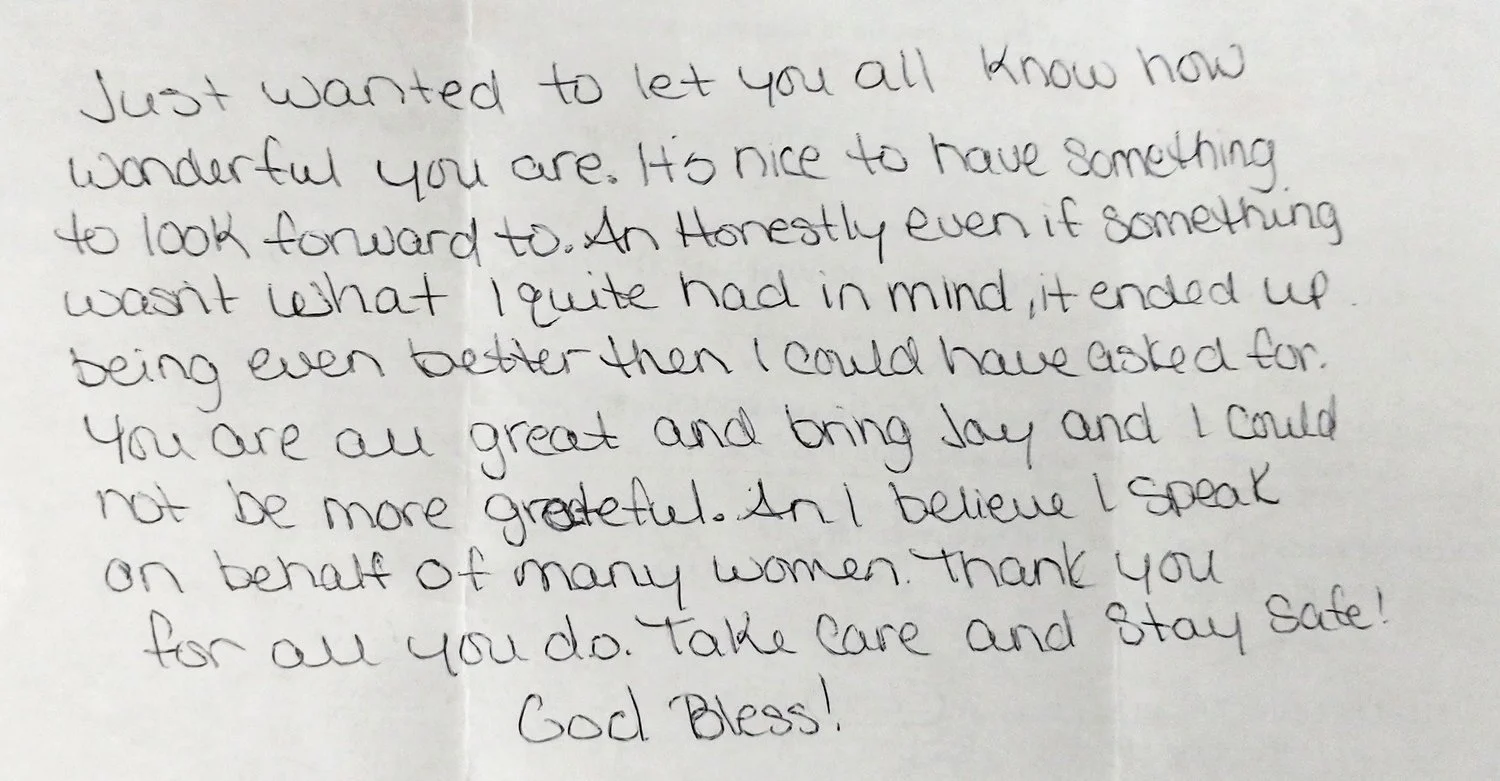 Just wanted to let you all know how
wonderful you are. It's nice to have something
to look forward to. An Honestly even if something
wasn't what I quite had in mind, it ended up
being even better then I could have asked for.
You are all great and bring Joy and I could
not be more grateful. An I believe I speak
on behalf of many women. Thank you
for all you do. Take care and stay safe!
God Bless!